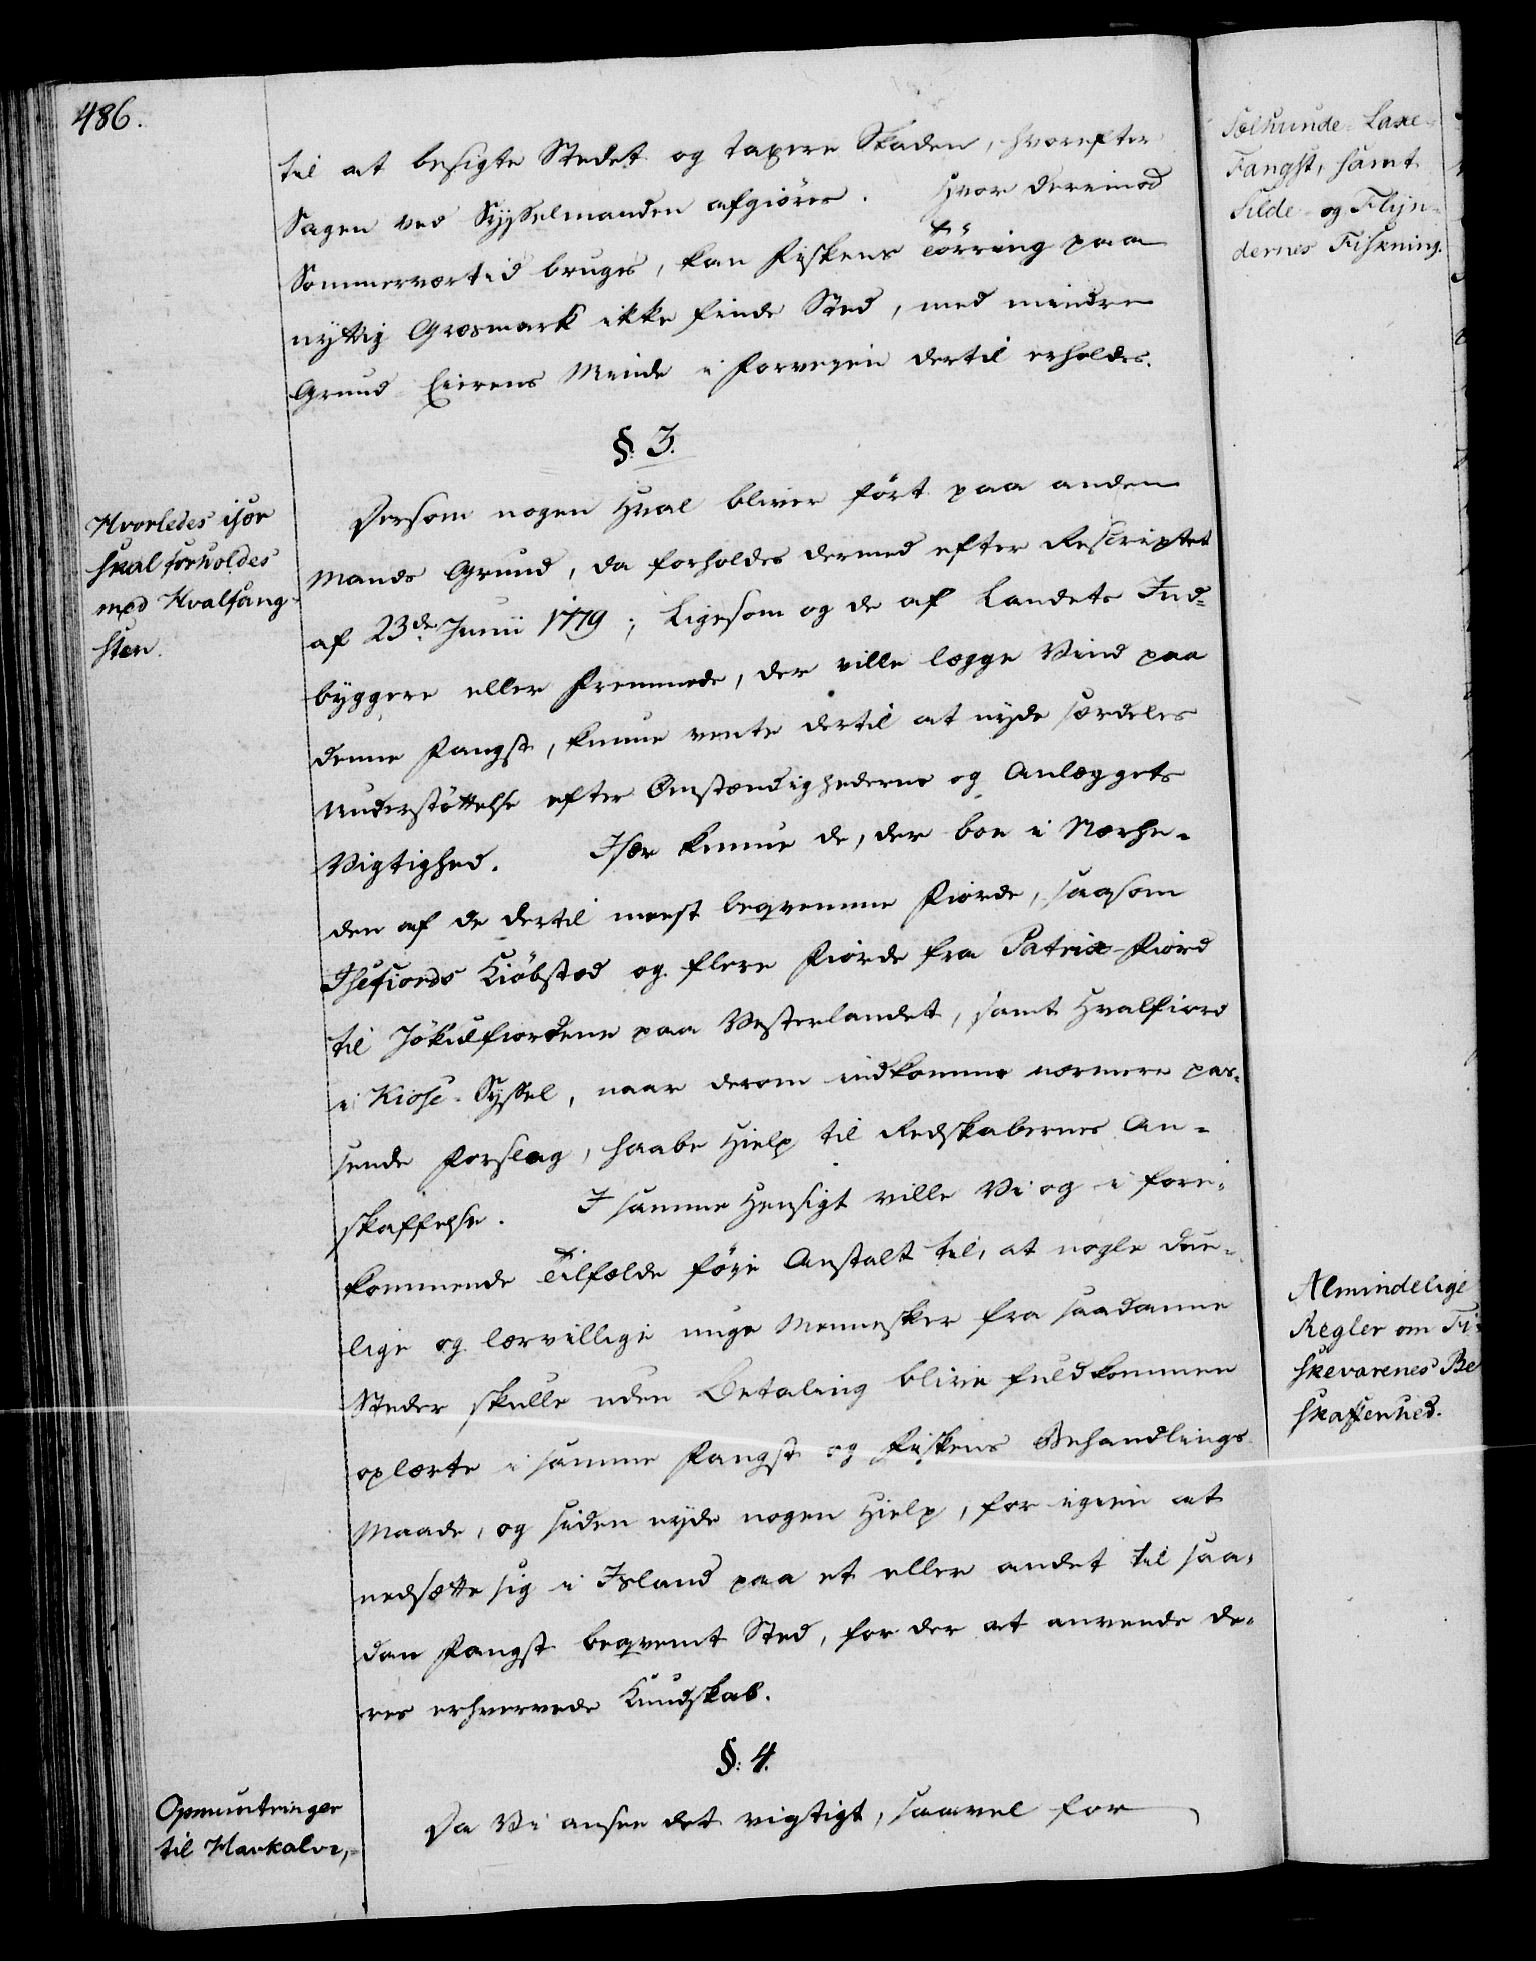 486.
til at besigte Stedet og taxere Skaden, hvorefter
Sagen ved Sysselmanden afgiöres. Hvor derimod
Sommervertid bruges, kan Fiskens Törring paa
nyttig Græsmark ikke finde Sted, med mindre
Grund-Eierens Minde i Forveyen dertil erholdes.
§. 3.
Hvorledes især
skal forholdes
med Hvalfang-
sten.
Dersom nogen Hval bliver fört paa anden
Mands Grund, da forholdes dermed efter Rescriptet
af 23de Junii 1779; Ligesom og de af Landets Ind-
byggere eller Fremmede, der ville lægge Vind paa
denne Fangst, kunne vente dertil at nyde særdeles
Understöttelse efter Omstændighederne og Anlæggets
Vigtighed. Især kunne de, der boe i Nærhe-
den af de dertil meest beqvemme Fiorde, saasom
Isefiords Kiöbsted og flere Fiorde fra Patrix-Fiord
til Jökulfiordene paa Vesterlandet, samt Hvalfiord
i Kiose-Syssel, naar derom indkomme nærmere pas-
sende Forslag, haabe Hielp til Redskabernes An-
skaffelse. I samme Hensigt ville Vi og i fore-
kommende Tilfælde föye Anstalt til, at nogle due-
lige og lærvillige unge Mennesker fra saadanne
Steder skulle uden Betaling blive fuldkommen
oplærte i samme Fangst og Fiskens Behandlings
Maade, og siden nyde nogen Hielp, for igien at
nedsætte sig i Island paa et eller andet til saa-
dan Fangst beqvemt Sted, for der at anvende de-
res erhvervede Kundskab.
§: 4.
Opmuntringer
til Havkalve,-
Da Vi ansee det vigtigt, saavel for
Sælhunde- Laxe-
Fangst, samt
Silde- og Flyn-
dernes Fiskning.
Almindelige
Regler om Fi-
skevarenes Be
skaffenhed.